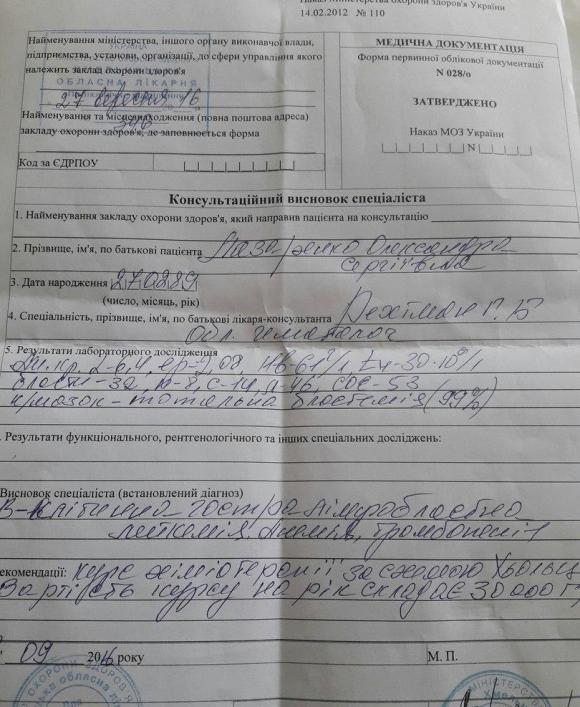 Наказ Міністерства охорони здоров'я України
14.02.2012 № 110
УКРАЇНА
Найменування міністерства, іншого органу виконавчої влади,
підприємства, установи, організації, до сфери управління якого
належить заклад охорони здоров'я
ОБЛАСНА ЛІКАРНЯ
27 вересня 16
346
Найменування та місцезнаходження (повна поштова адреса)
закладу охорони здоров'я, де заповнюється форма
Код за ЄДРПОУ
МЕДИЧНА ДОКУМЕНТАЦІЯ
Форма первинної облікової документації
N 028/о
ЗАТВЕРДЖЕНО
Наказ МОЗ України
N
Консультаційний висновок спеціаліста
1. Найменування закладу охорони здоров'я, який направив пацієнта на консультацію
2. Прізвище, ім'я, по батькові пацієнта Лазаренко Олександра
Сергіївна
3. Дата народження 270289
(число, місяць, рік)
4. Спеціальність, прізвище, ім'я, по батькові лікаря-консультанта Рехтман Г. Б
Обл. гематолог
5. Результати лабораторного дослідження
Ан. кр. L-6,4, ер- ,08, Нв-61г/л, -30·10⁹/л
бласти-32, п-8, с-14, л-46, СОЕ-53
мазок-тотальна бластемія (99%)
. Результати функціонального, рентгенологічного та інших спеціальних досліджень:
Висновок спеціаліста (встановлений діагноз)
В-клітинна гостра лімфобластна
лейкемія. Анемія, тромбопенія
екомендації: курс хіміотерапії за схемою Хьольц
Вартість курсу на рік складає 30 000 г
09 2016 року
М. П.
ОХОРОНИ ЗДОРОВ'Я
ька обласна лі
Для
МІНІСТЕРСТВО
Хмель